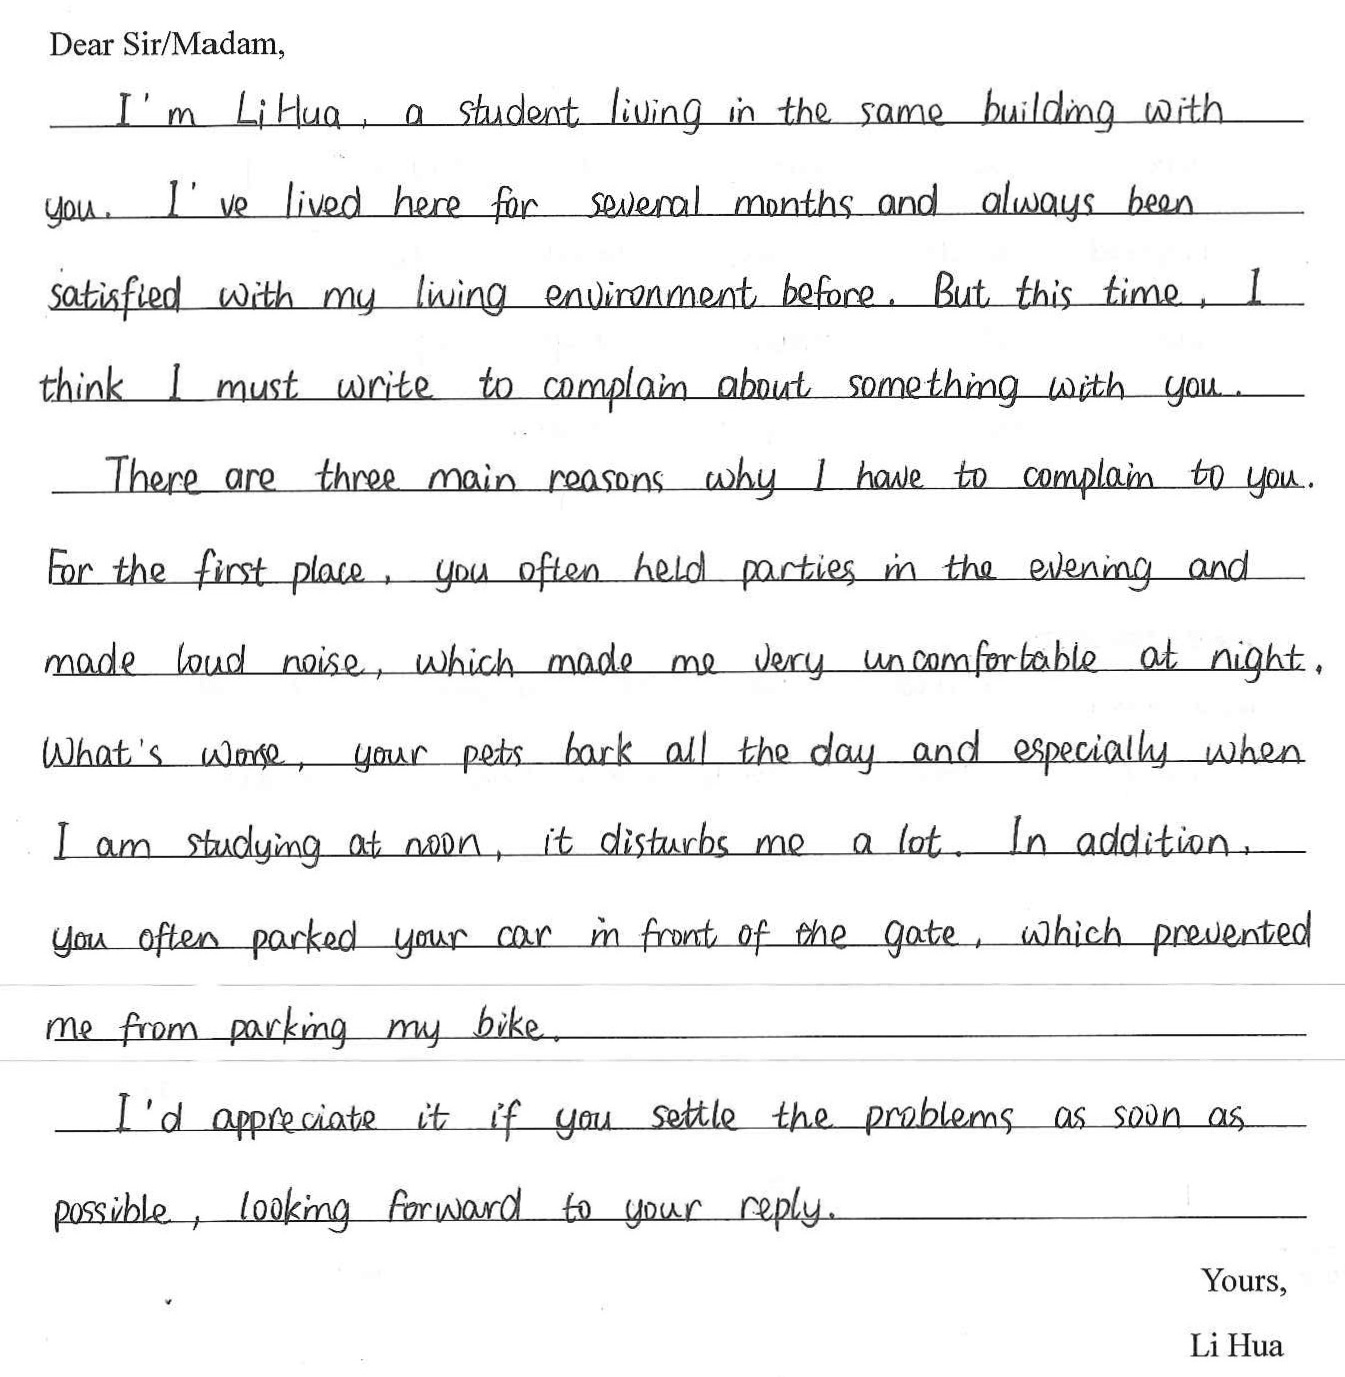 Dear Sir/Madam,
I'm Li Hua, a student living in the same building with
you. I've lived here for several months and always been
satisfied with my living environment before. But this time, I
think I must write to complain about something with you.
There are three main reasons why I have to complain to you.
For the first place, you often held parties in the evening and
made loud noise, which made me very uncomfortable at night.
What's worse, your pets bark all the day and especially when
I am studying at noon, it disturbs me a lot. In addition,
you often parked your car in front of the gate, which prevented
me from parking my bike.
I'd appreciate it if you settle the problems as soon as
possible, looking forward to your reply.
Yours,
Li Hua